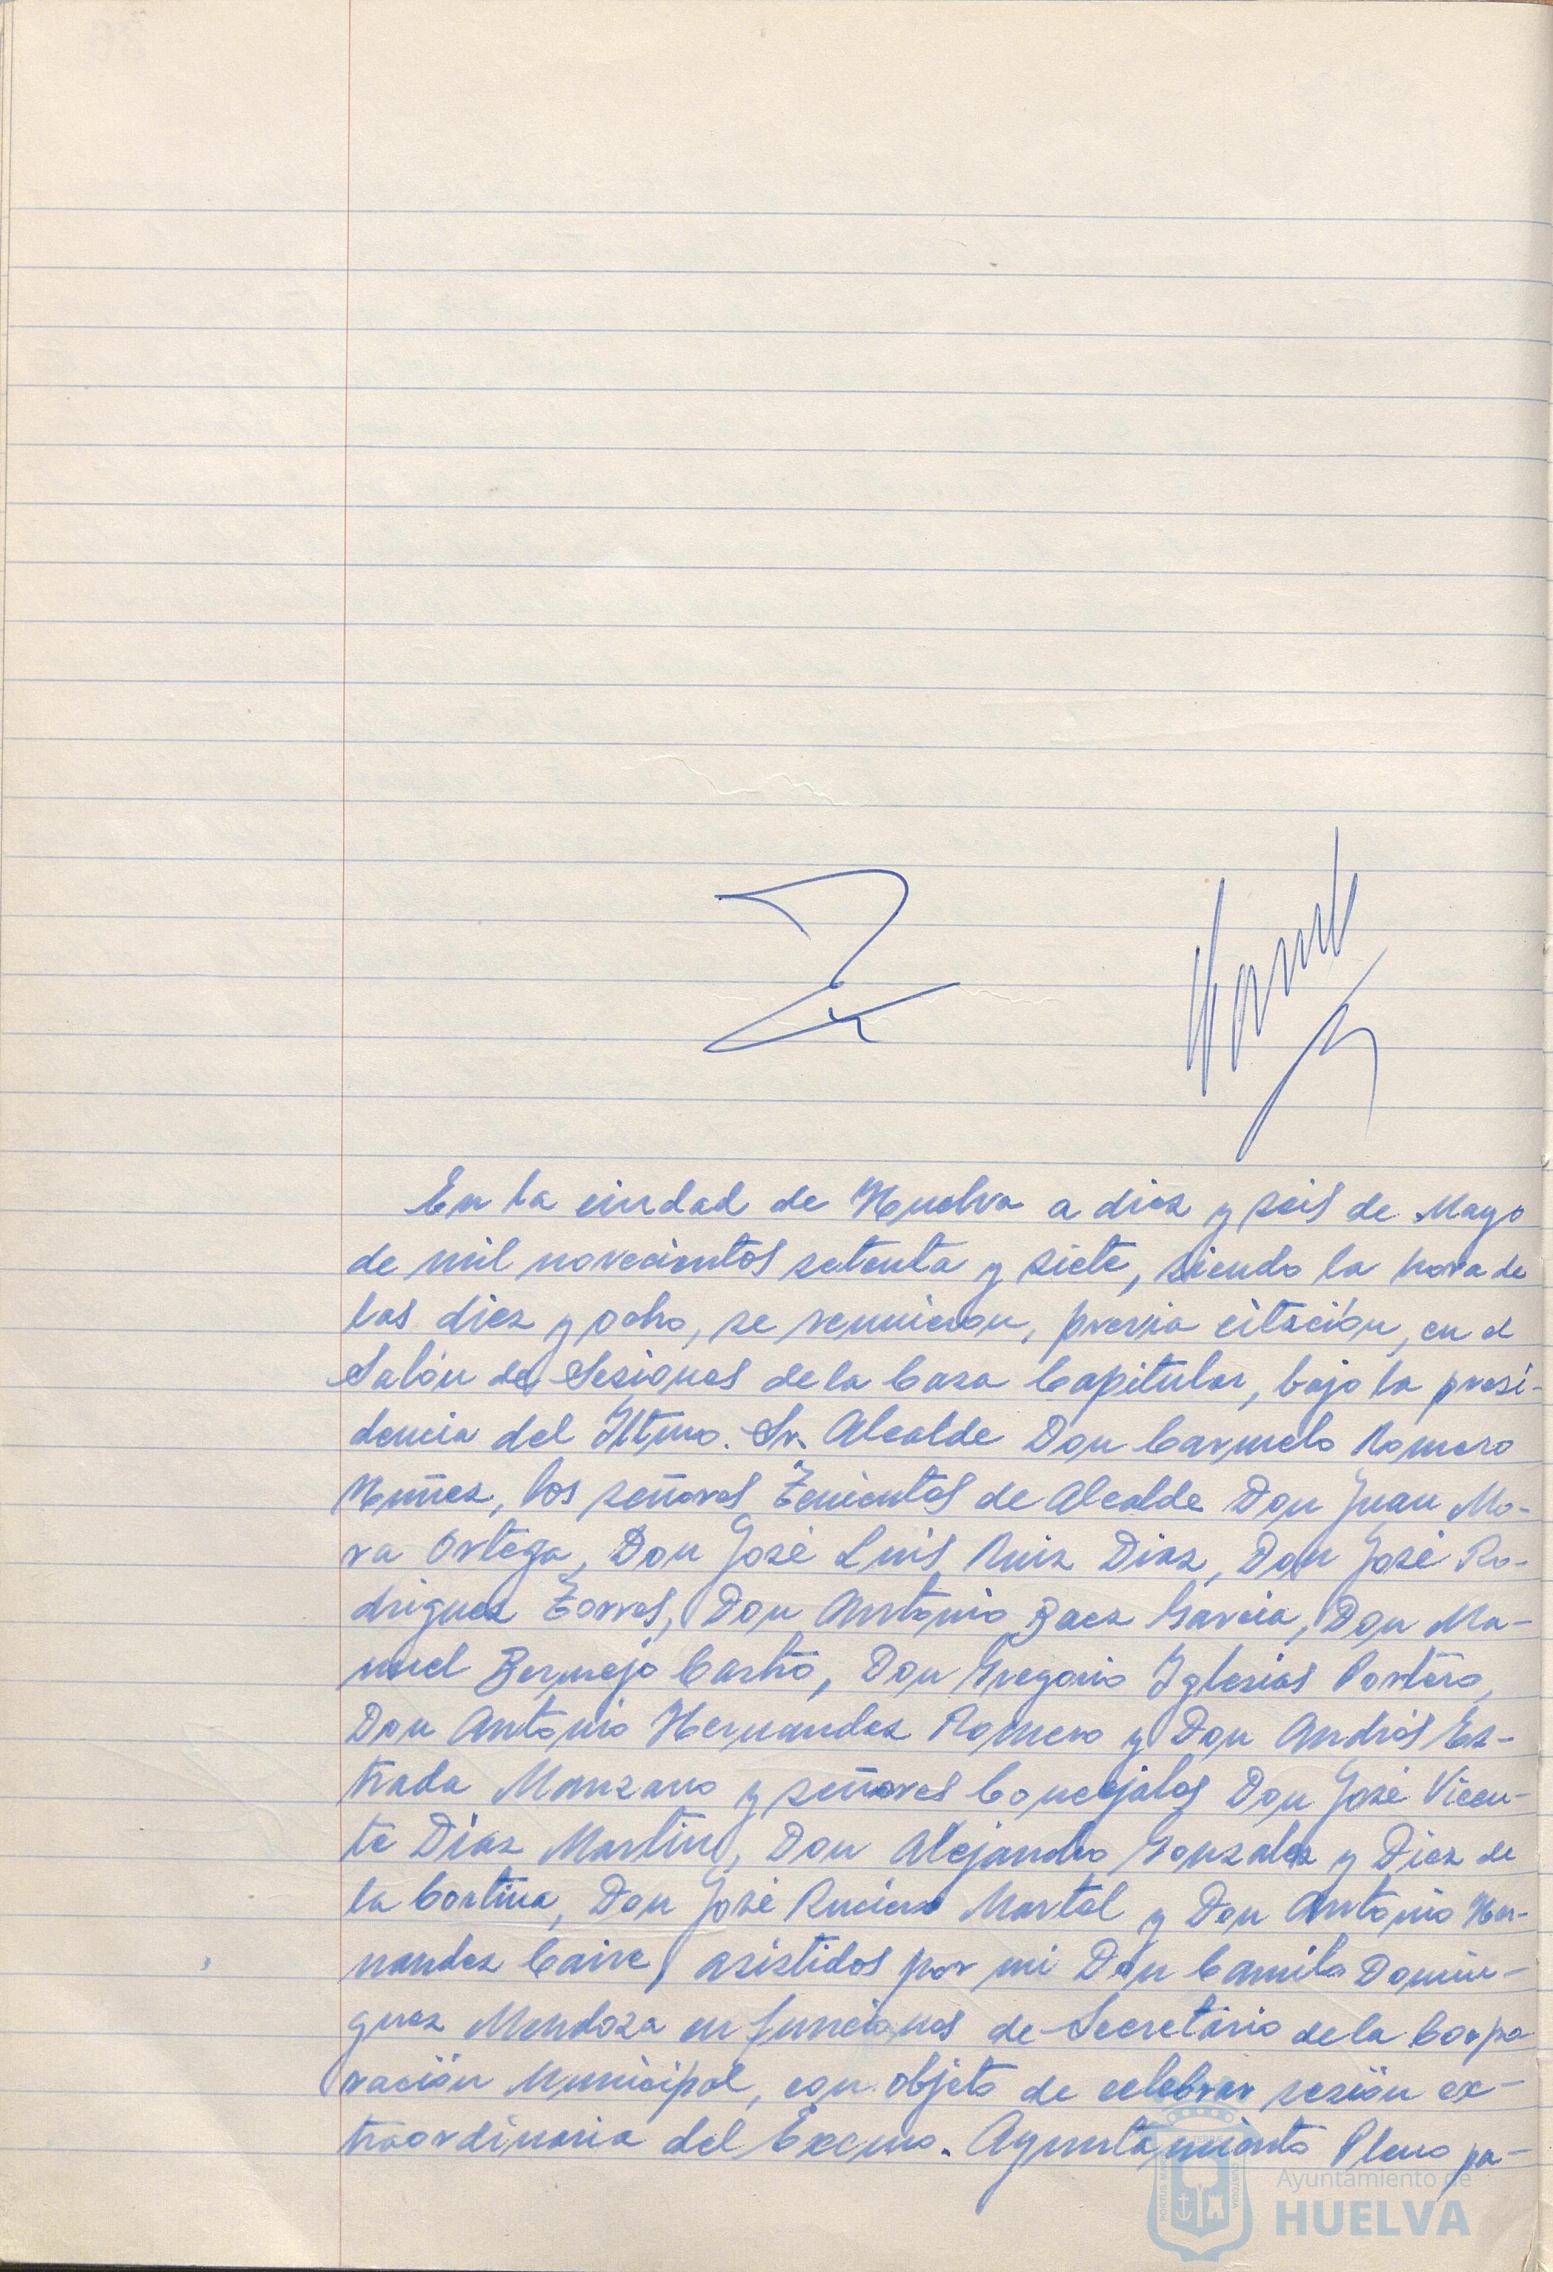 En la ciudad de Huelva a diez y seis de Mayo
de mil novecientos setenta y siete, siendo la hora de
las diez y ocho, se reunieron, previa citación, en el
Salón de Sesiones de la Casa Capitular, bajo la presi-
dencia del Iltmo. Sr. Alcalde Don Carmelo Romero
Nuñez, los señores Tenientes de Alcalde Don Juan Mo-
ra Ortega, Don José Luis Ruiz Diaz, Don José Ro-
driguez Torres, Don Antonio Baez Garcia, Don Ma-
nuel Bermejo Castro, Don Gregorio Iglesias Portero,
Don Antonio Hernandez Romero y Don Andrés Es-
trada Manzano y señores Concejales Don José Vicen-
te Diaz Martin, Don Alejandro Gonzalez y Diez de
la Cortina, Don José Ruciero Martel y Don Antonio Her-
nandez Caire, asistidos por mi Don Camilo Domin-
guez Mendoza en funciones de Secretario de la Corpo
ración Municipal, con objeto de celebrar sesión ex-
traordinaria del Excmo. Ayuntamiento Pleno pa-
Ayuntamiento de
HUELVA